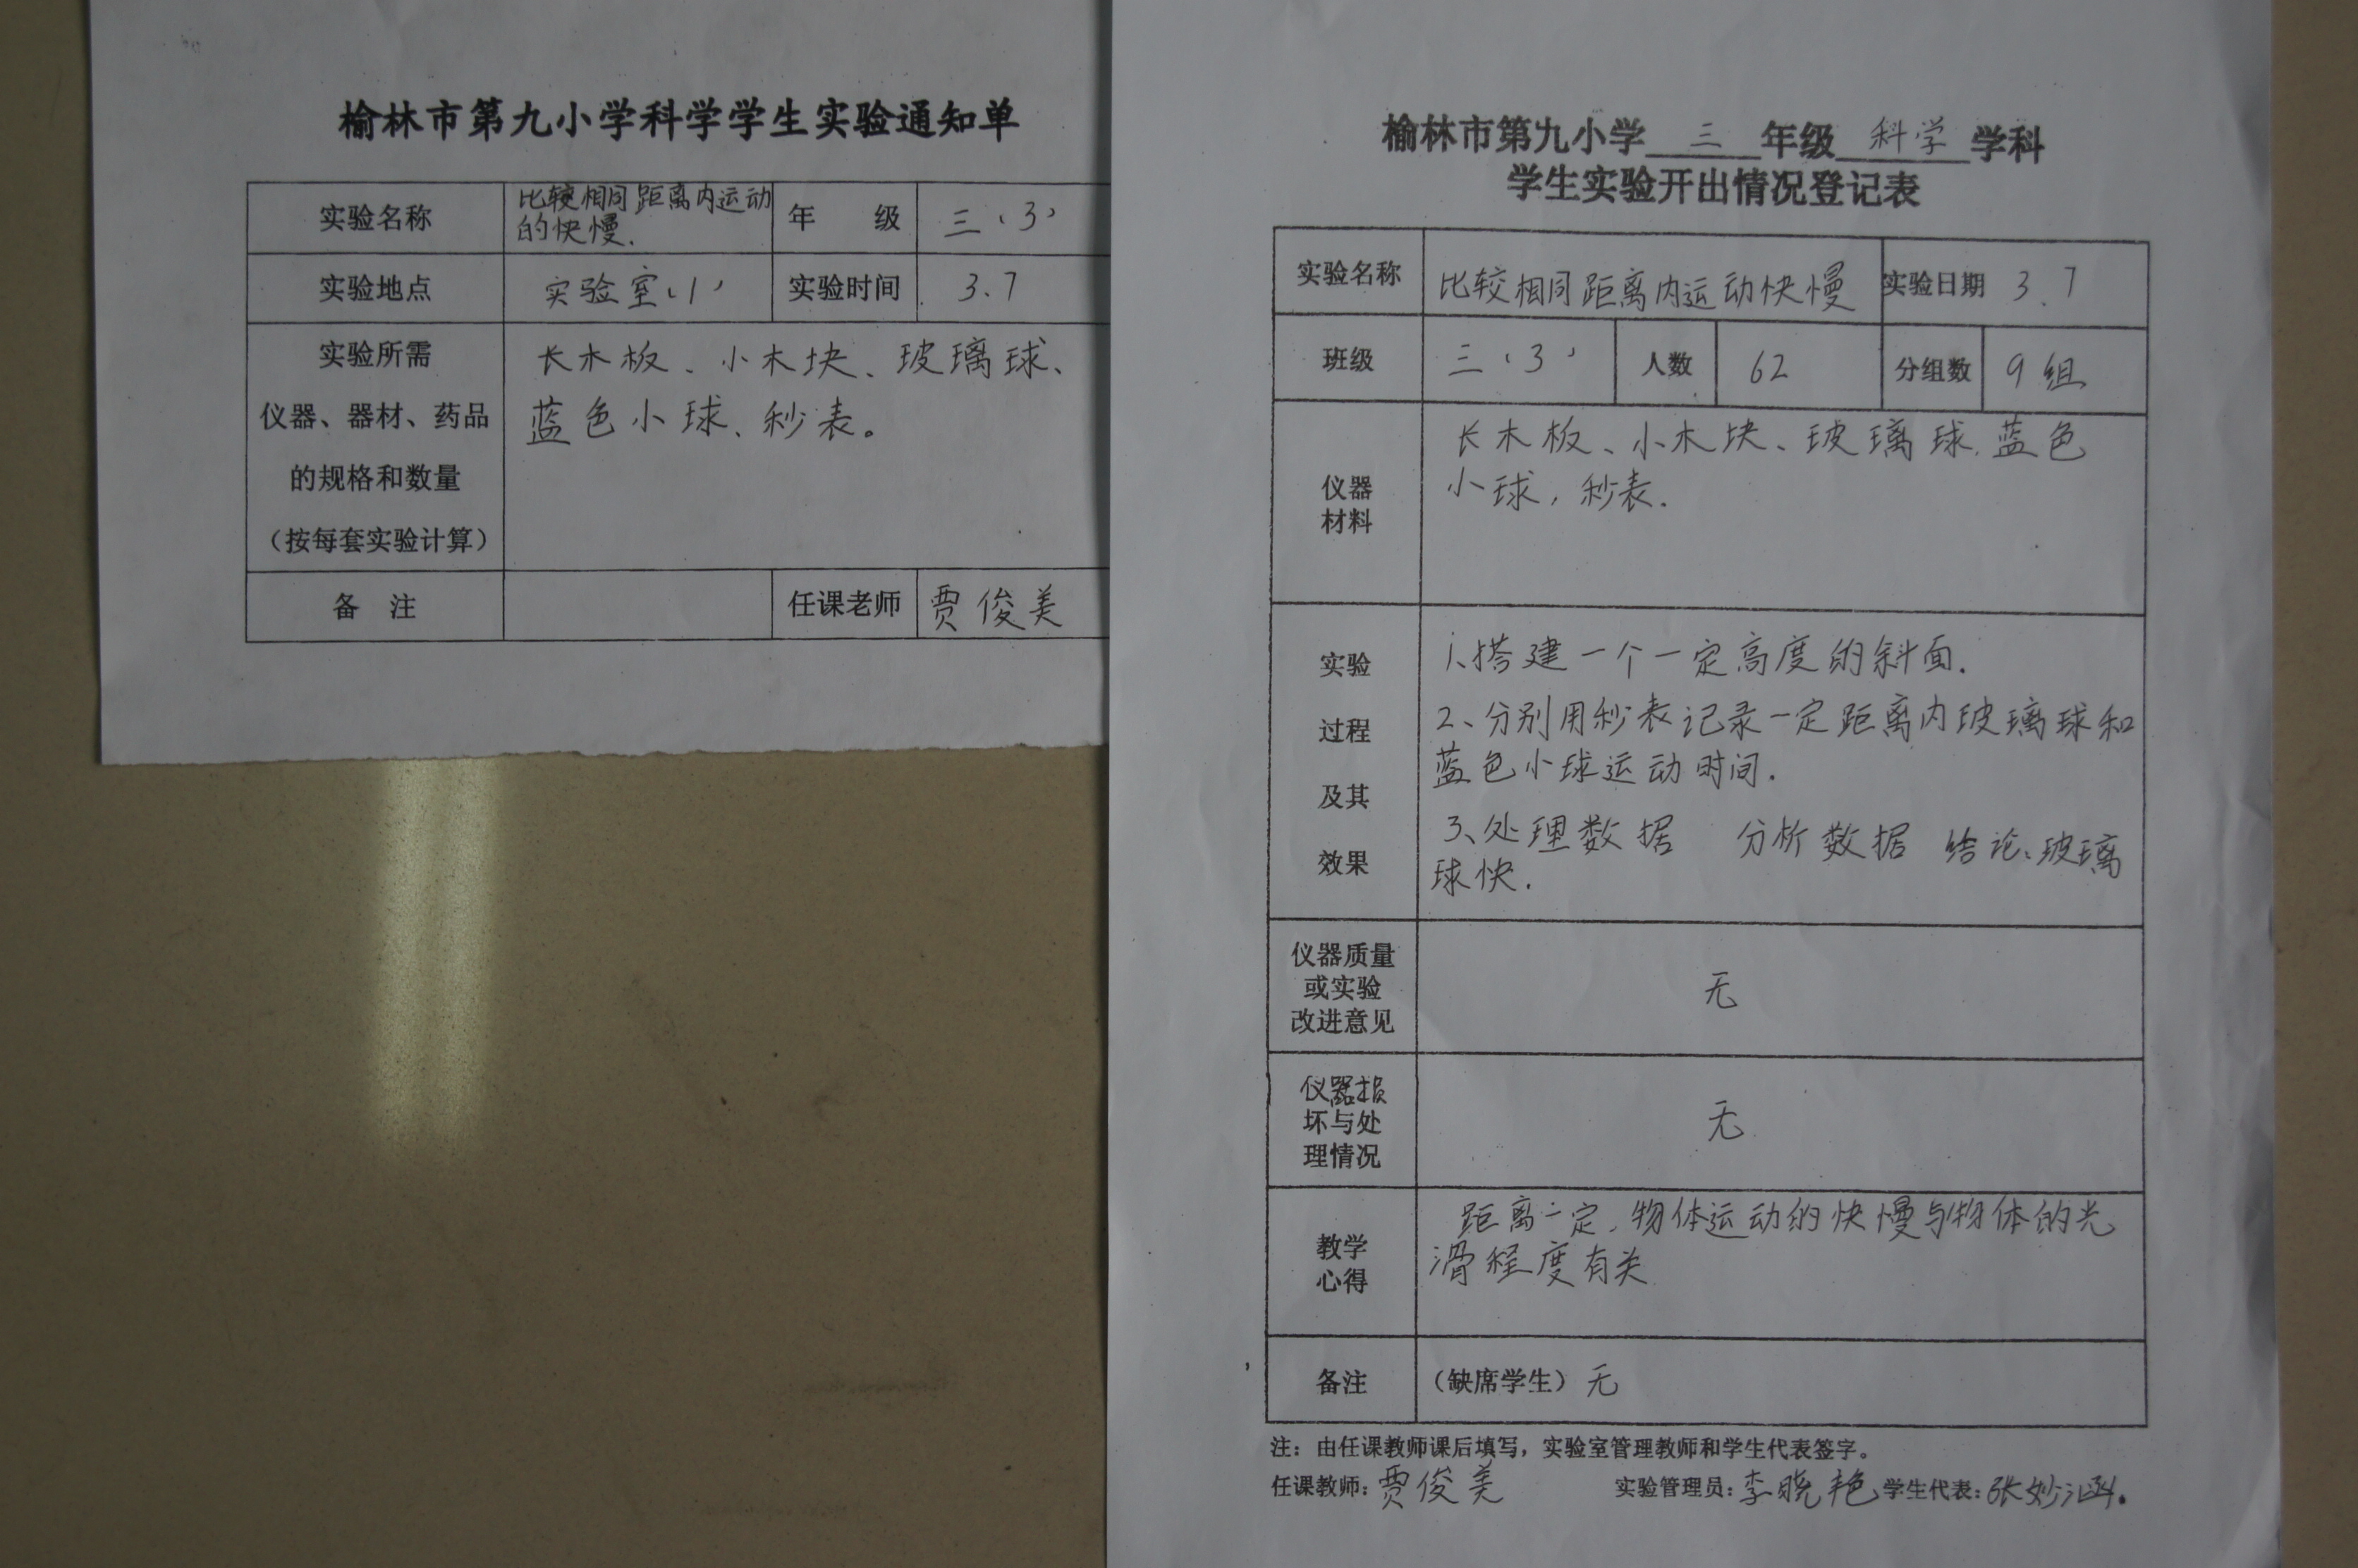 榆林市第九小学科学学生实验通知单
实验名称 比较相同距离内运动的快慢. 年 级 三(3)
实验地点 实验室(1) 实验时间 3.7
实验所需
仪器、器材、药品
的规格和数量
(按每套实验计算)
长木板、小木块、玻璃球、
蓝色小球、秒表。
备 注 任课老师 贾俊美
榆林市第九小学 三 年级 科学 学科
学生实验开出情况登记表
实验名称 比较相同距离内运动快慢 实验日期 3.7
班级 三(3) 人数 62 分组数 9组
仪器
材料
长木板、小木块、玻璃球.蓝色
小球,秒表.
实验
过程
及其
效果
1、搭建一个一定高度的斜面.
2、分别用秒表记录一定距离内玻璃球和
蓝色小球运动时间.
3、处理数据 分析数据 结论:玻璃
球快.
仪器质量
或实验
改进意见
无
仪器损
坏与处
理情况
无
教学
心得
距离一定,物体运动的快慢与物体的光
滑程度有关
备注 (缺席学生) 无
注:由任课教师课后填写,实验室管理教师和学生代表签字。
任课教师:贾俊美 实验管理员:李晓艳 学生代表:张妙涵.